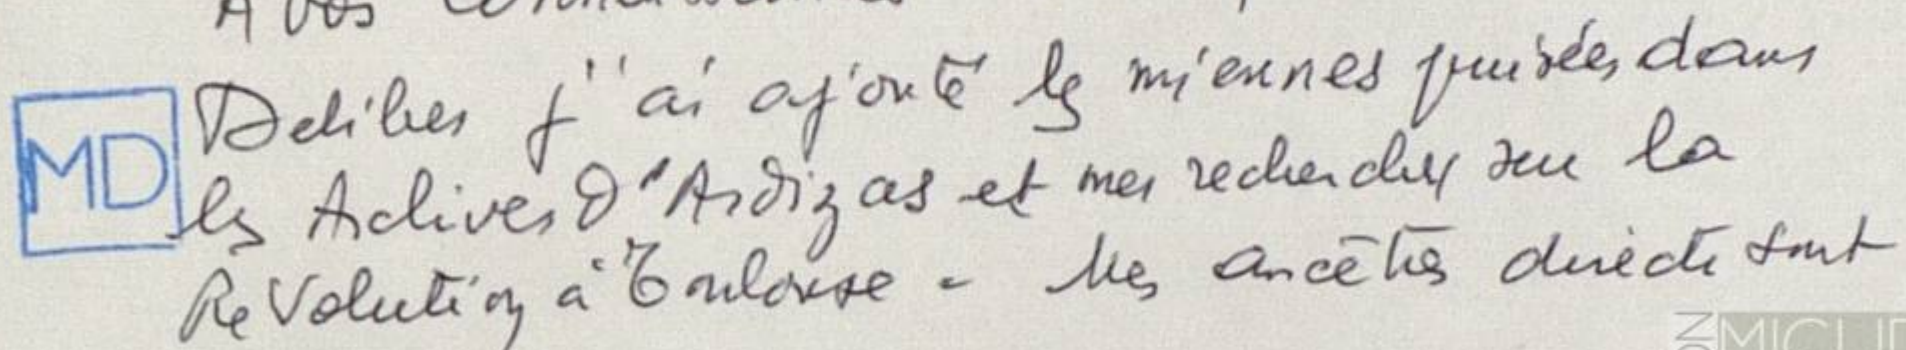 A vos
Delibes j'ai ajouté les miennes puisées dans
les Archives d'Ardizas et mes recherches sur la
Révolution à Toulouse - Mes ancêtres directs sont
MD